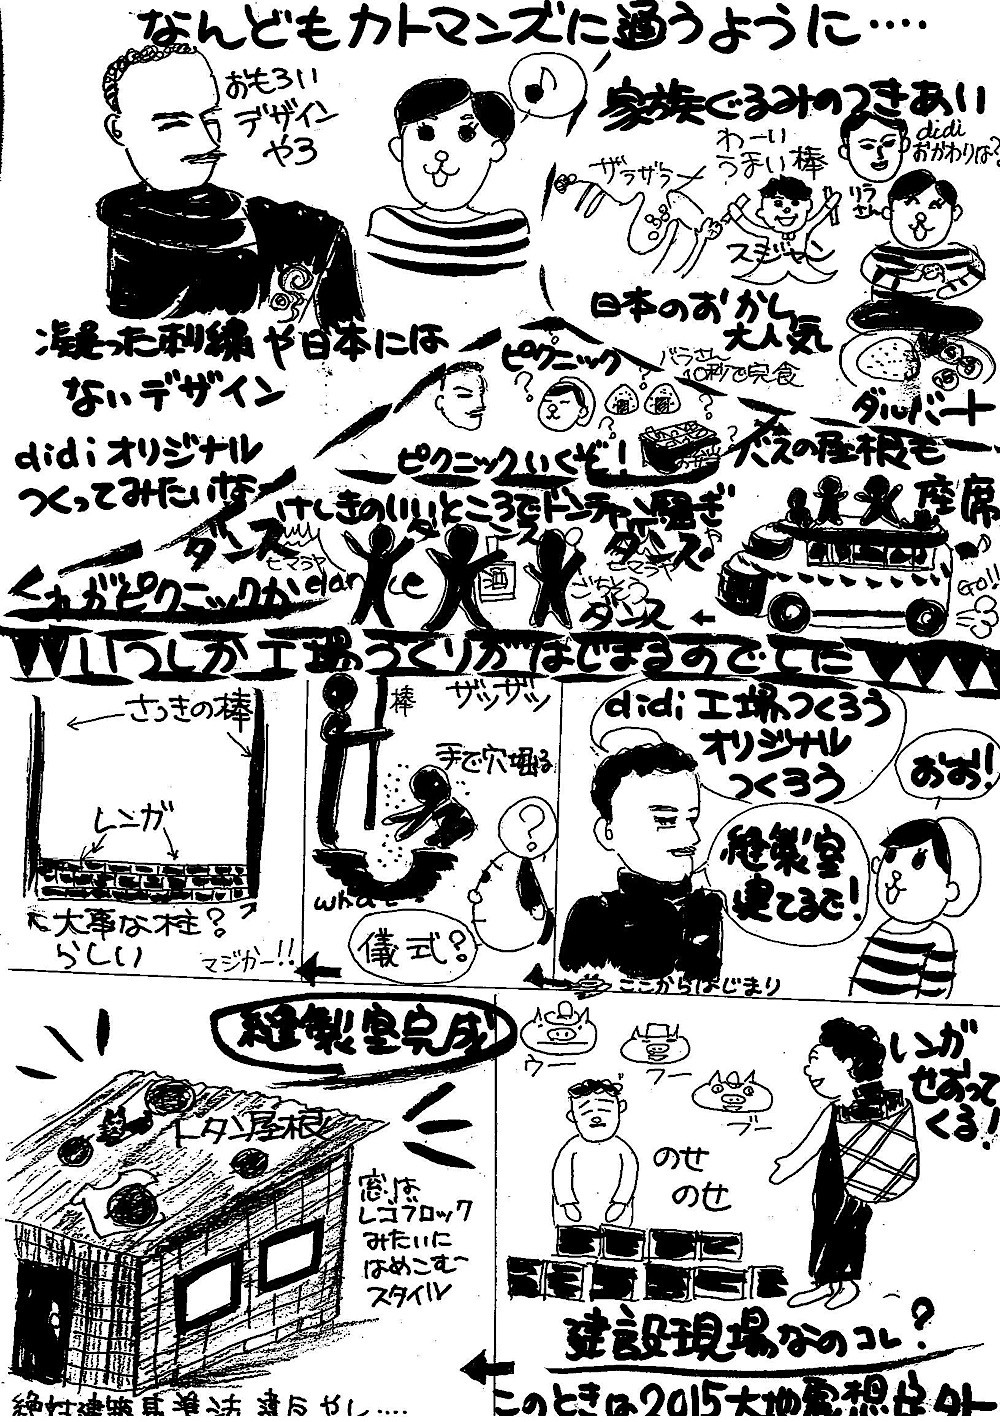 なんどもカトマンズに通うように‥‥
おもろい
デザイン
やろ
家族ぐるみのつきあい
わーい
うまい棒
ザラザラー
スジャン
didi
おかわりは?
リラ
さん
凝った刺繍や日本には
ないデザイン
日本のおかし
大人気
ダルバート
didiオリジナル
つくってみたいなー
ピクニック
バラさん
10秒で完食
ピクニックいくぞ!
お弁当
バスの屋根も
座席
GO!!
けしきのいいところでドンチャン騒ぎ
ダンス
ヒマラヤ
dance
ダンス
酒
ヒマラヤ
ダンス
ごちそう
ダンス
これがピクニックか
いつしか工場づくりがはじまるのでした
didi工場つくろう
オリジナル
つくろう
おお!
縫製室
建てるで!
ここからはじまり
棒
ザッザッ
手で穴掘る
?
what?
儀式?
さっきの棒
レンガ
大事な柱?
らしい
マジかー!!
レンガ
せおって
くる!
ウー
フー
ブー
のせ
のせ
建設現場なのコレ?
このときは2015大地震想定外
縫製室完成
トタン屋根
窓は
レゴブロック
みたいに
はめこむ〜
スタイル
絶対建築基準法違反やし‥‥